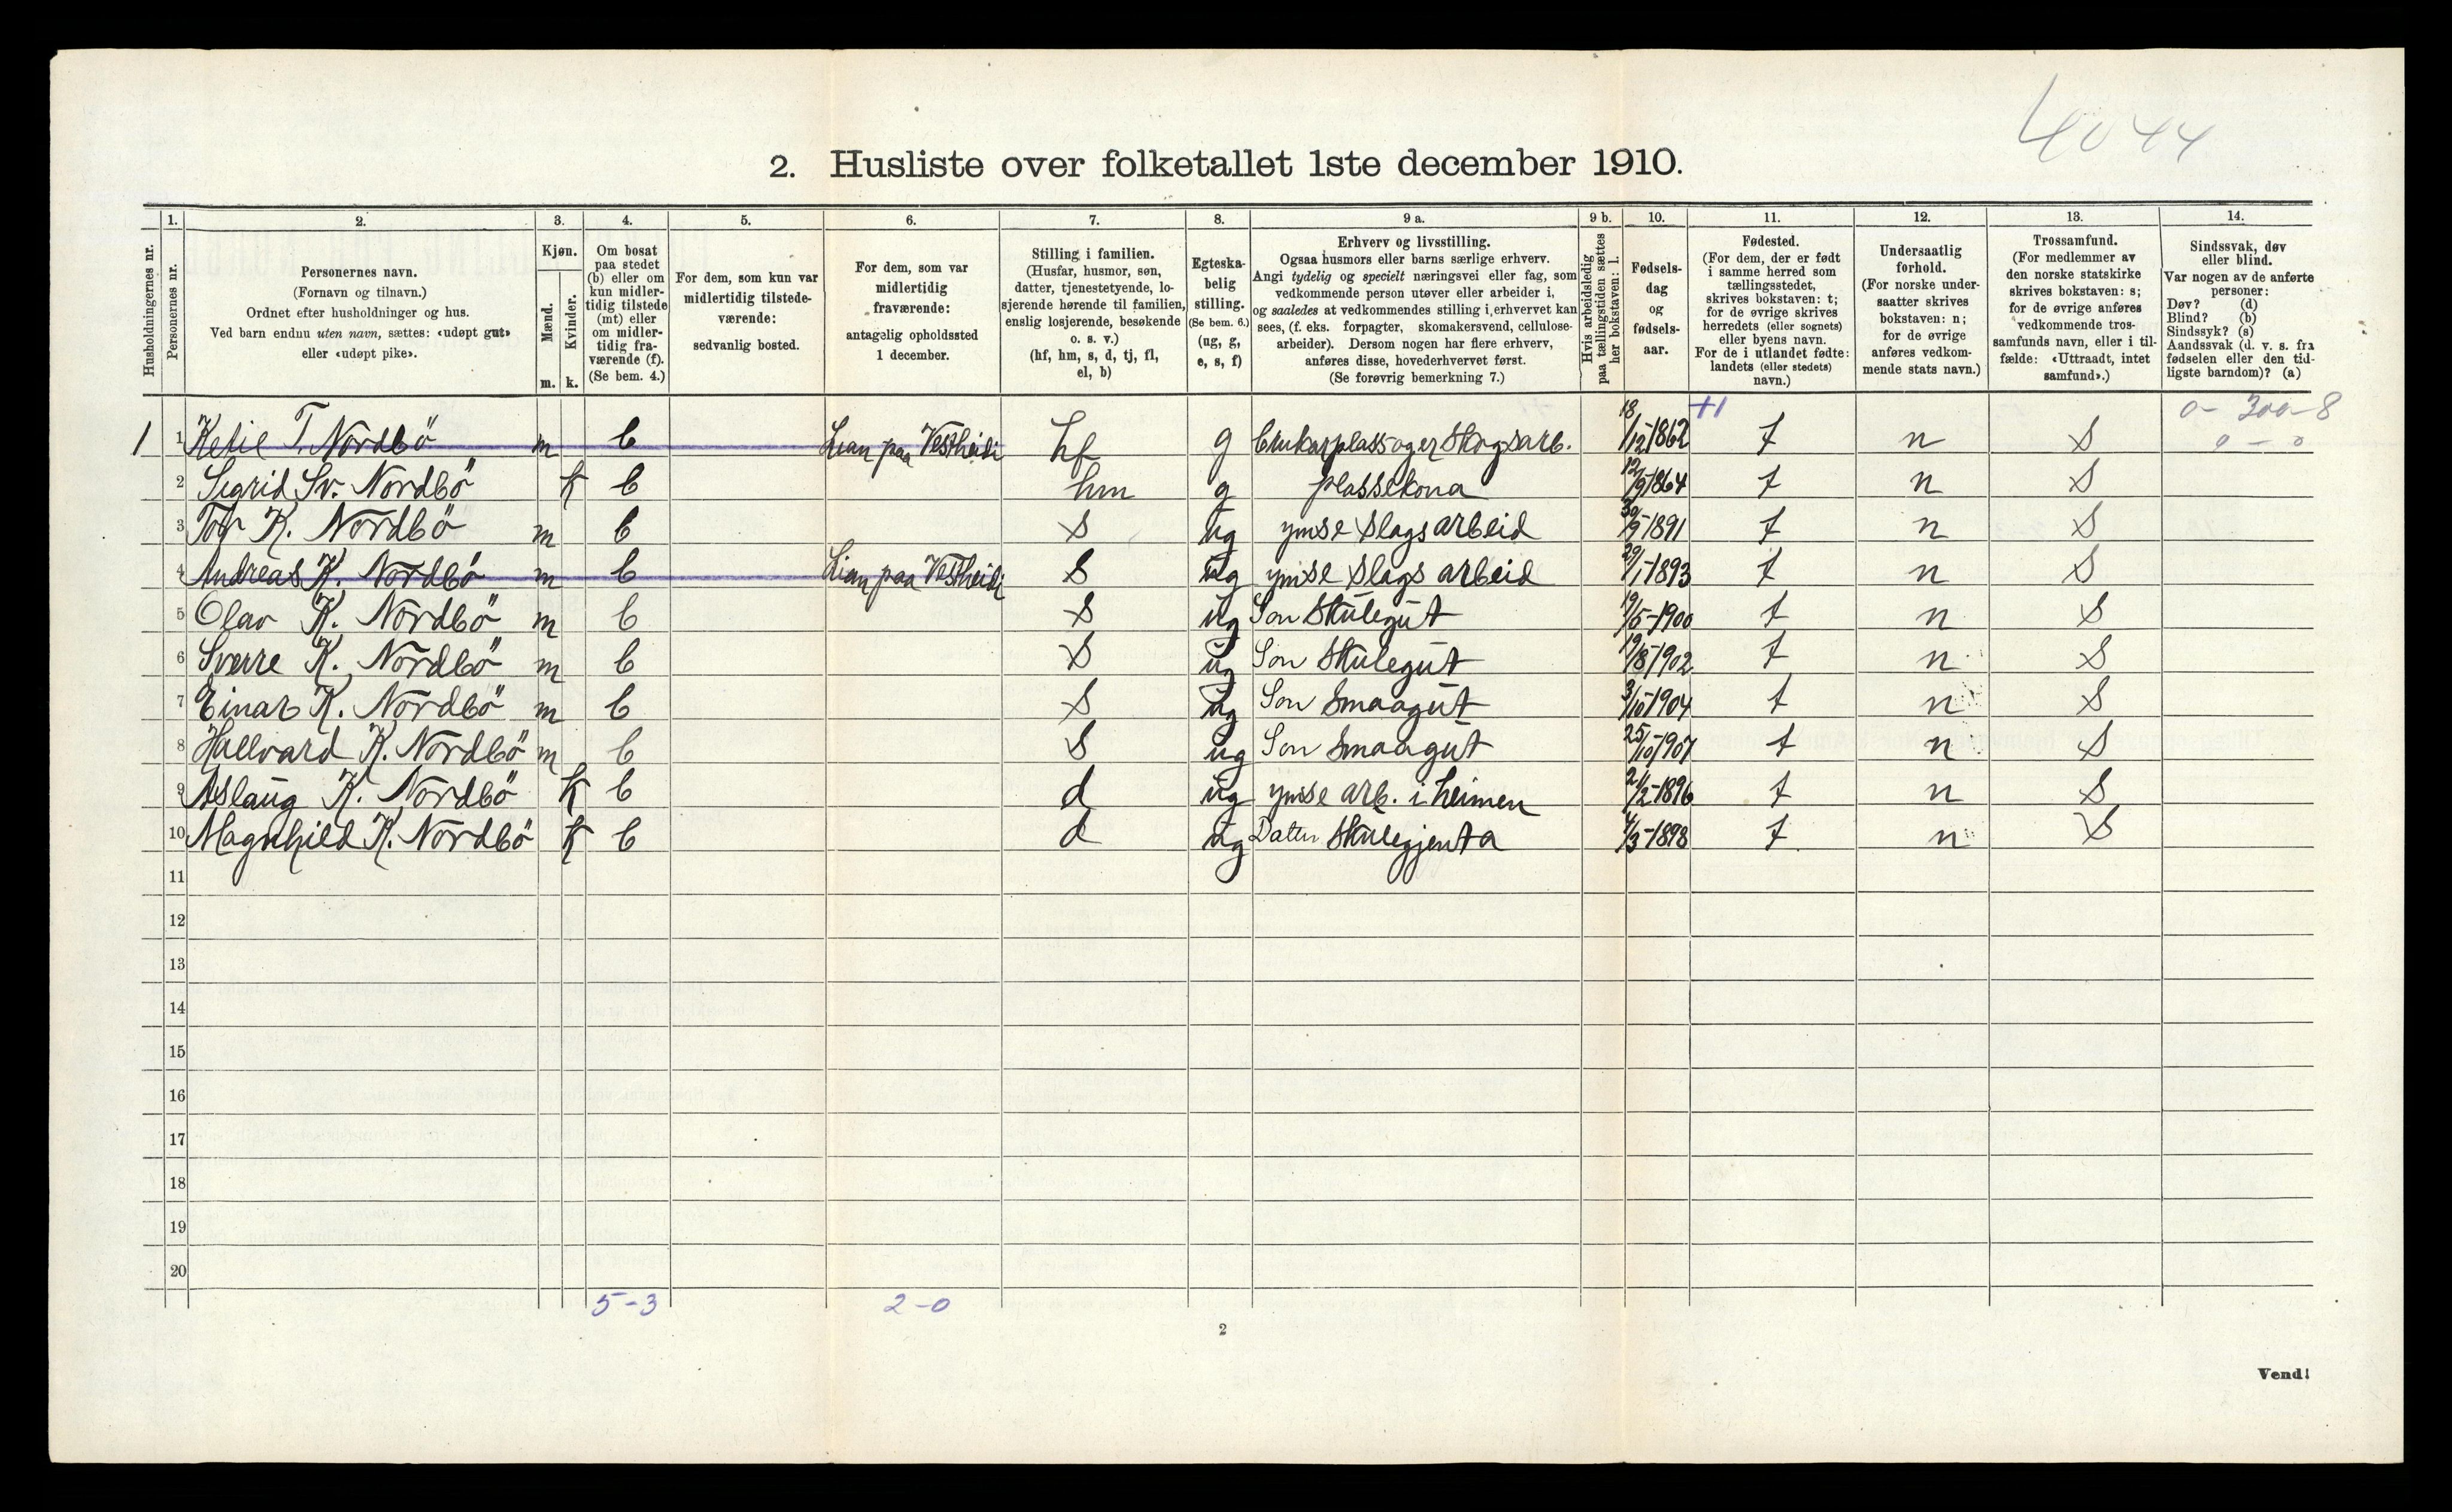 4044
2. Husliste over folketallet 1ste december 1910.
1. 2. 3. 4. 5. 6. 7. 8. 9 a. 9 b. 10. 11. 12. 13. 14.
Husholdningernes nr.
Personernes nr.
Personernes navn.
(Fornavn og tilnavn.)
Ordnet efter husholdninger og hus.
Ved barn endnu uten navn, sættes: «udøpt gut»
eller «udøpt pike».
Kjøn.
Mænd.
Kvinder.
m. k.
Om bosat
paa stedet
(b) eller om
kun midler-
tidig tilstede
(mt) eller
om midler-
tidig fra-
værende (f).
(Se bem. 4.)
For dem, som kun var
midlertidig tilstede-
værende:
sedvanlig bosted.
For dem, som var
midlertidig
fraværende:
antagelig opholdssted
1 december.
Stilling i familien.
(Husfar, husmor, søn,
datter, tjenestetyende, lo-
sjerende hørende til familien,
enslig losjerende, besøkende
o. s. v.)
(hf, hm, s, d, tj, fl,
el, b)
Egteska-
belig
stilling.
(Se bem. 6.)
(ug, g,
e, s, f)
Erhverv og livsstilling.
Ogsaa husmors eller barns særlige erhverv.
Angi tydelig og specielt næringsvei eller fag, som
vedkommende person utøver eller arbeider i,
og saaledes at vedkommendes stilling i erhvervet kan
sees, (f. eks. forpagter, skomakersvend, cellulose-
arbeider). Dersom nogen har flere erhverv,
anføres disse, hovederhvervet først.
(Se forøvrig bemerkning 7.)
Hvis arbeidsledig
paa tællingstiden sættes
her bokstaven: l.
Fødsels-
dag
og
fødsels-
aar.
Fødested.
(For dem, der er født
i samme herred som
tællingsstedet,
skrives bokstaven: t;
for de øvrige skrives
herredets (eller sognets)
eller byens navn.
For de i utlandet fødte:
landets (eller stedets)
navn.)
Undersaatlig
forhold.
(For norske under-
saatter skrives
bokstaven: n;
for de øvrige
anføres vedkom-
mende stats navn.)
Trossamfund.
(For medlemmer av
den norske statskirke
skrives bokstaven: s;
for de øvrige anføres
vedkommende tros-
samfunds navn, eller i til-
fælde: «Uttraadt, intet
samfund».)
Sindssvak, døv
eller blind.
Var nogen av de anførte
personer:
Døv? (d)
Blind? (b)
Sindssyk? (s)
Aandssvak (d. v. s. fra
fødselen eller den tid-
ligste barndom)? (a)
+1 0-300-8
1 1 Ketil T. Nordbö m b Lian paa Vestheidi hf g brukar plass og er Skogsarb. 18/12-1862 t n S 0-0
2 Sigrid Sv. Nordbö k b hm g plassekona 12/9 1864 t n S
3 Tor K. Nordbö m b S ug ymse Slags arbeid 30/9-1891 t n S
4 Andreas K. Nordbö m b Lian paa Vestheidi S ug ymse Slags arbeid 29/1-1893 t n S
5 Olav K. Nordbö m b S ug Son Skulegut 19/5-1900 t n S
6 Sverre K. Nordbö m b S ug Son Skulegut 19/8-1902 t n S
7 Einar K. Nordbö m b S ug Son Smaagut 3/10-1904 t n S
8 Hallvard K. Nordbö m b S ug Son Smaagut 25/10-1907 t n S
9 Aslaug K. Nordbö k b d ug ymse arb. i heimen 2/2-1896 t n S
10 Magnhild K. Nordbö k b d ug Datter Skulegjenta 4/3-1898 t n S
11
12
13
14
15
16
17
18
19
20
5-3 2-0
2
Vend!